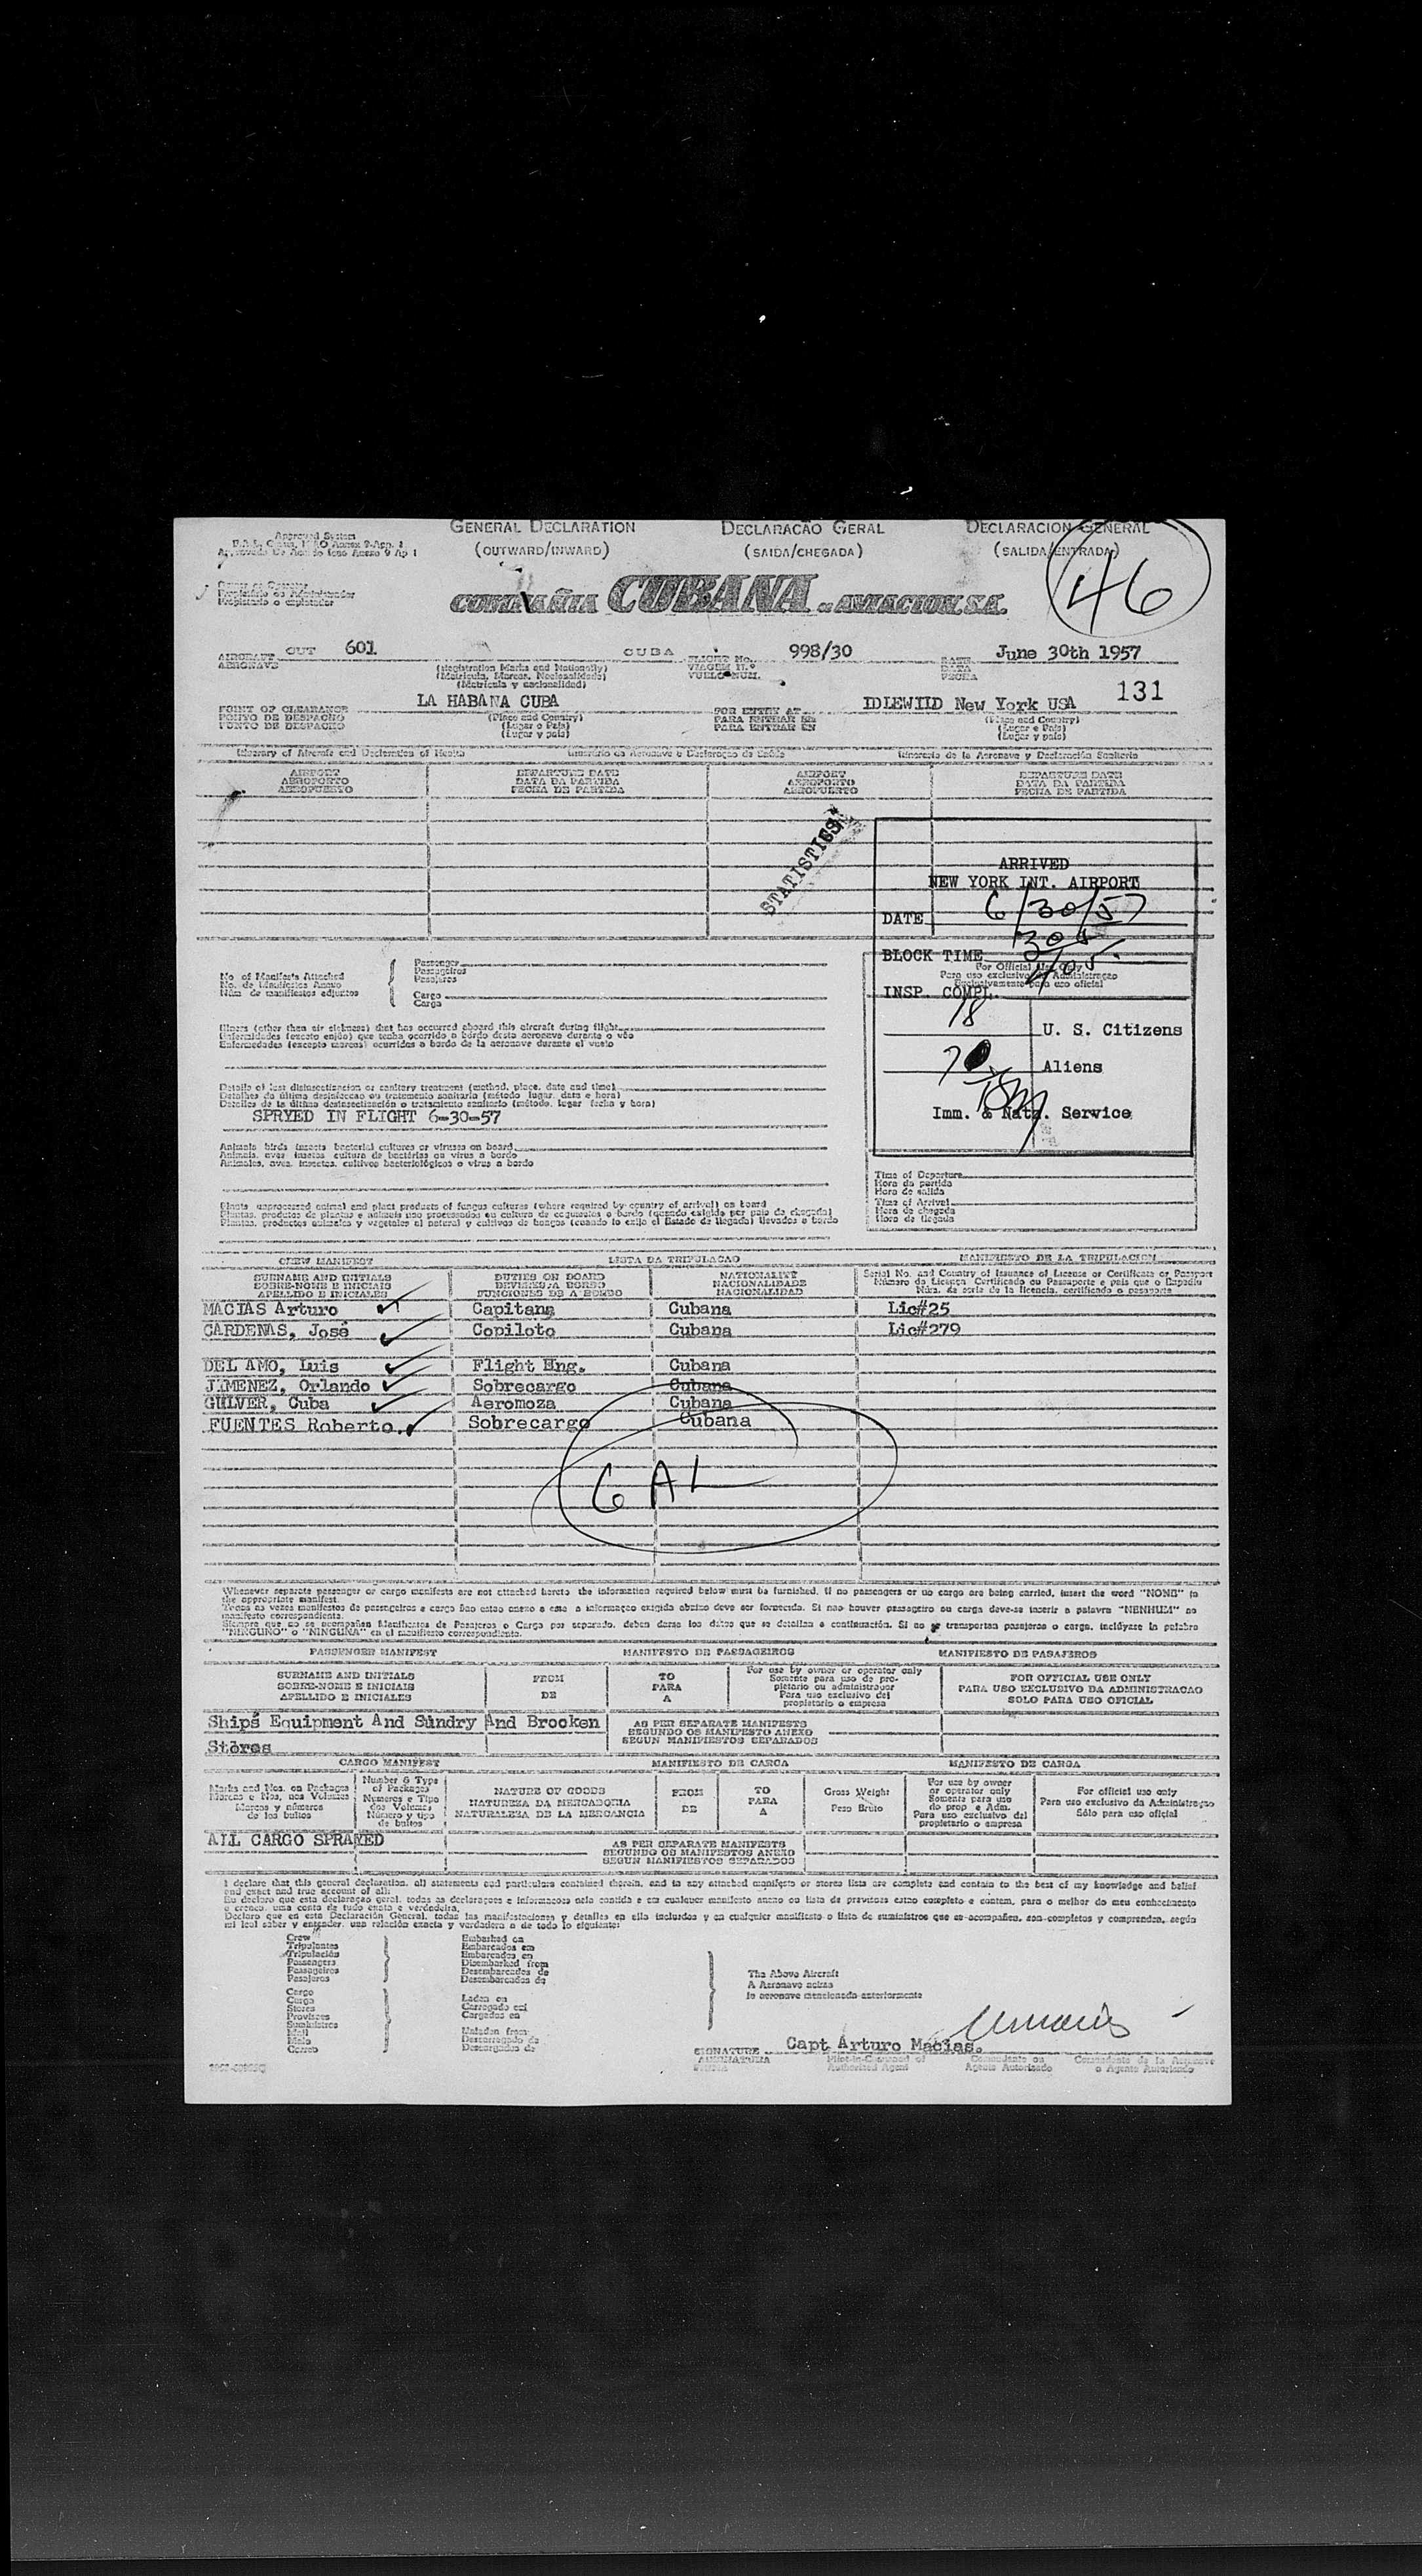 GENERAL DECLARATION DECLARACÃO GERAL DECLARACION GENERAL
(OUTWARD/INWARD) (SAIDA/CHEGADA) (SALIDA/ENTRADA)
46
COMPAÑIA CUBANA DE AVIACION, S.A.
AIRCRAFT CUT 601 CUBA FLIGHT No. 998/30 DATE June 30th 1957
AERONAVE (Registration Marks and Nationality) VIAGEM N.º DATA
(Matricula y nacionalidad) VUELO NUM. FECHA
131
POINT OF CLEARANCE LA HABANA CUBA FOR ENTRY AT IDLEWILD New York USA
PONTO DE DESPACHO (Place and Country) PARA ENTRAR EM (Place and Country)
PUNTO DE DESPACHO (Lugar y pais) PARA ENTRAR EN (Lugar y pais)
Itinerary of Aircraft and Declaration of Health Itinerario da Aeronave e Declaração de Saúde Itinerario de la Aeronave y Declaración Sanitaria
AIRPORT DEPARTURE DATE AIRPORT DEPARTURE DATE
AEROPORTO DATA DA PARTIDA AEROPORTO DATA DA PARTIDA
AEROPUERTO FECHA DE PARTIDA AEROPUERTO FECHA DE PARTIDA
STATISTICS
ARRIVED
NEW YORK INT. AIRPORT
DATE 6/30/57
BLOCK TIME 305
INSP. COMPL. 405
18 U. S. Citizens
70 Aliens
Imm. & Natz. Service
No. of Manifests Attached Passenger
No. de Manifiestos Anexo Passageiros
Núm. de manifiestos adjuntos Pasajeros
Cargo
Carga
For Official Use Only
Para uso exclusivo da Administraçao
Exclusivamente para uso oficial
Illness (other than air sickness) that has occurred aboard this aircraft during flight
Enfermidades (exceto enjôo) que tenha ocorrido a bordo desta aeronave durante o vôo
Enfermedades (excepto mareos) ocurridas a bordo de la aeronave durante el vuelo
Details of last disinsectization or sanitary treatment (method, place, date and time)
Detalhes da última desinfeccao ou tratamento sanitario (método lugar, data e hora)
Detalles de la última desinsectización o tratamiento sanitario (método, lugar fecha y hora)
SPRYED IN FLIGHT 6-30-57
Animals birds insects bacterial cultures or viruses on board
Animais, aves insetos cultura de bactérias ou virus a bordo
Animales, aves, insectos, cultivos bacteriológicos o virus a bordo
Time of Departure
Hora da partida
Hora de salida
Time of Arrival
Hora da chegada
Hora de llegada
Plants unprocessed animal and plant products of fungus cultures (where required by country of arrival) on board
Plantas, productos animales y vegetales al natural y cultivos de hongos (cuando lo exija el Estado de llegada) llevados a bordo
CREW MANIFEST LISTA DA TRIPULACAO MANIFIESTO DE LA TRIPULACION
SURNAME AND INITIALS DUTIES ON BOARD NATIONALITY Serial No. and Country of Issuance of License or Certificate or Passport
SOBRE-NOME E INICIAIS DEVERES A BORDO NACIONALIDADE Número da Licença, Certificado ou Passaporte e pais que o Expediu
APELLIDO E INICIALES FUNCIONES DE A BORDO NACIONALIDAD Núm. de serie de la licencia, certificado o pasaporte
MACIAS Arturo Capitans Cubana Lic#25
CARDENAS, José Copiloto Cubana Lic#279
DEL AMO, Luis Flight Eng. Cubana
JIMENEZ, Orlando Sobrecargo Cubana
GULVER, Cuba Aeromoza Cubana
FUENTES Roberto. Sobrecargo Cubana
6 AL
Whenever separate passenger or cargo manifests are not attached hereto the information required below must be furnished. If no passengers or no cargo are being carried, insert the word "NONE" in
the appropriate manifest.
Siempre que no se acompañen Manifiestos de Pasajeros o Carga por separado, deben darse los datos que se detallan a continuación. Si no se transportan pasajeros o carga, inclúyase la palabra
"NINGUNO" o "NINGUNA" en el manifiesto correspondiente.
PASSENGER MANIFEST MANIFESTO DE PASSAGEIROS MANIFIESTO DE PASAJEROS
SURNAME AND INITIALS FROM TO For use by owner or operator only FOR OFFICIAL USE ONLY
SOBRE-NOME E INICIAIS PARA Somente para uso do pro- PARA USO EXCLUSIVO DA ADMINISTRACAO
APELLIDO E INICIALES DE A pietario ou administrador SOLO PARA USO OFICIAL
Para uso exclusivo del
propietario o empresa
Ships Equipment And Sundry And Brocken AS PER SEPARATE MANIFESTS
Stores SEGUNDO OS MANIFESTO ANEXO
SEGUN MANIFIESTOS SEPARADOS
CARGO MANIFEST MANIFIESTO DE CARGA MANIFIESTO DE CARGA
Marks and Nos. on Packages Number & Type of Packages NATURE OF GOODS FROM TO Gross Weight For use by owner or operator only For official use only
Marcas e Nos. nos Volumes Numeros e Tipo dos Volumes NATUREZA DA MERCADORIA PARA Somente para uso do prop e Adm. Para uso exclusivo da Administraçao
Marcas y números de los bultos Número y tipo de bultos NATURALEZA DE LA MERCANCIA DE A Peso Bruto Para uso exclusivo del propietario o empresa Sólo para uso oficial
ALL CARGO SPRAYED AS PER SEPARATE MANIFESTS
SEGUNDO OS MANIFESTOS ANEXO
SEGUN MANIFIESTOS SEPARADOS
I declare that this general declaration, all statements and particulars contained therein, and in any attached manifests or stores lists are complete and contain to the best of my knowledge and belief
and exact and true account of all:
Declaro que en esta Declaración General, todas las manifestaciones y detalles en ella incluidos y en cualquier manifiesto o lista de suministros que se acompañen, son completos y comprenden, según
mi leal saber y entender, una relación exacta y verdadera o de todo lo siguiente:
Crew Embarked on
Tripulantes Embarcados em
Tripulación Embarcados en
Passengers Disembarked from
Passageiros Desembarcados de
Pasajeros Desembarcados de
The Above Aircraft
A Aeronave acima
la aeronave mencionada anteriormente
Cargo
Carga Laden on
Stores Carregado em
Provisoes Cargados en
Suministros
Mail Unladen from
Mala Descarregado de
Correo Descargados de
SIGNATURE Capt Arturo Macias.
ASSINATURA Pilot-in-Command of Comandante ou Comandante de la Aeronave
FIRMA Authorized Agent Agente Autorizado o Agente Autorizado